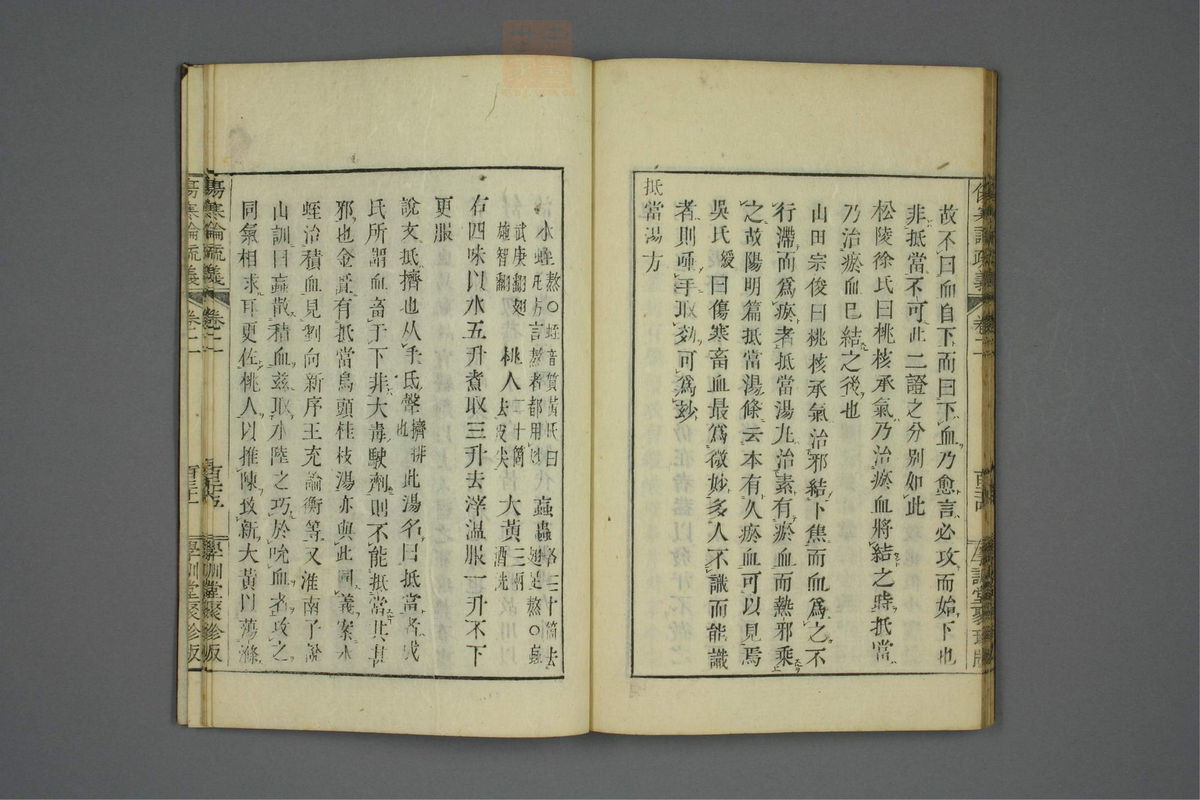 故不曰血自下而曰下血乃愈言必攻而始下也
非抵當不可此二證之分別如此
松陵徐氏曰桃核承氣乃治瘀血將結之時抵當
乃治瘀血已結之後也
山田宗俊曰桃核承氣治邪結下焦而血爲之不
行滯而爲瘀者抵當湯九治素有瘀血而熱邪乘
之故陽明篇抵當湯條云本有久瘀血可以見焉
吳氏緩曰傷寒畜血最爲微妙多人不識而能識
者則唾手取效可爲妙
抵當湯方
水蛭熬○蛭音質黃氏曰
方言熬者都用
蝱蟲各三十箇去
翅足熬○蝱
武庚翻翅
施智翻
桃人二十箇
去皮尖
大黃三兩
酒洗
右四味以水五升煮取三升去滓溫服一升不下
更服
說文抵擠也从手氐聲擠排也此湯名曰抵當者成
氏所謂血畜于下非大毒駛劑則不能抵當其甚
邪也金匱有抵當烏頭桂枝湯亦與此同義案水
蛭治積血見劉向新序王充論衡等又淮南子說
山訓曰蝱散積血茲取水陸之巧於吮血者攻之
同氣相求耳更佐桃人以推陳致新大黃以蕩滌
傷寒論疏義
卷二
學訓堂聚珍版